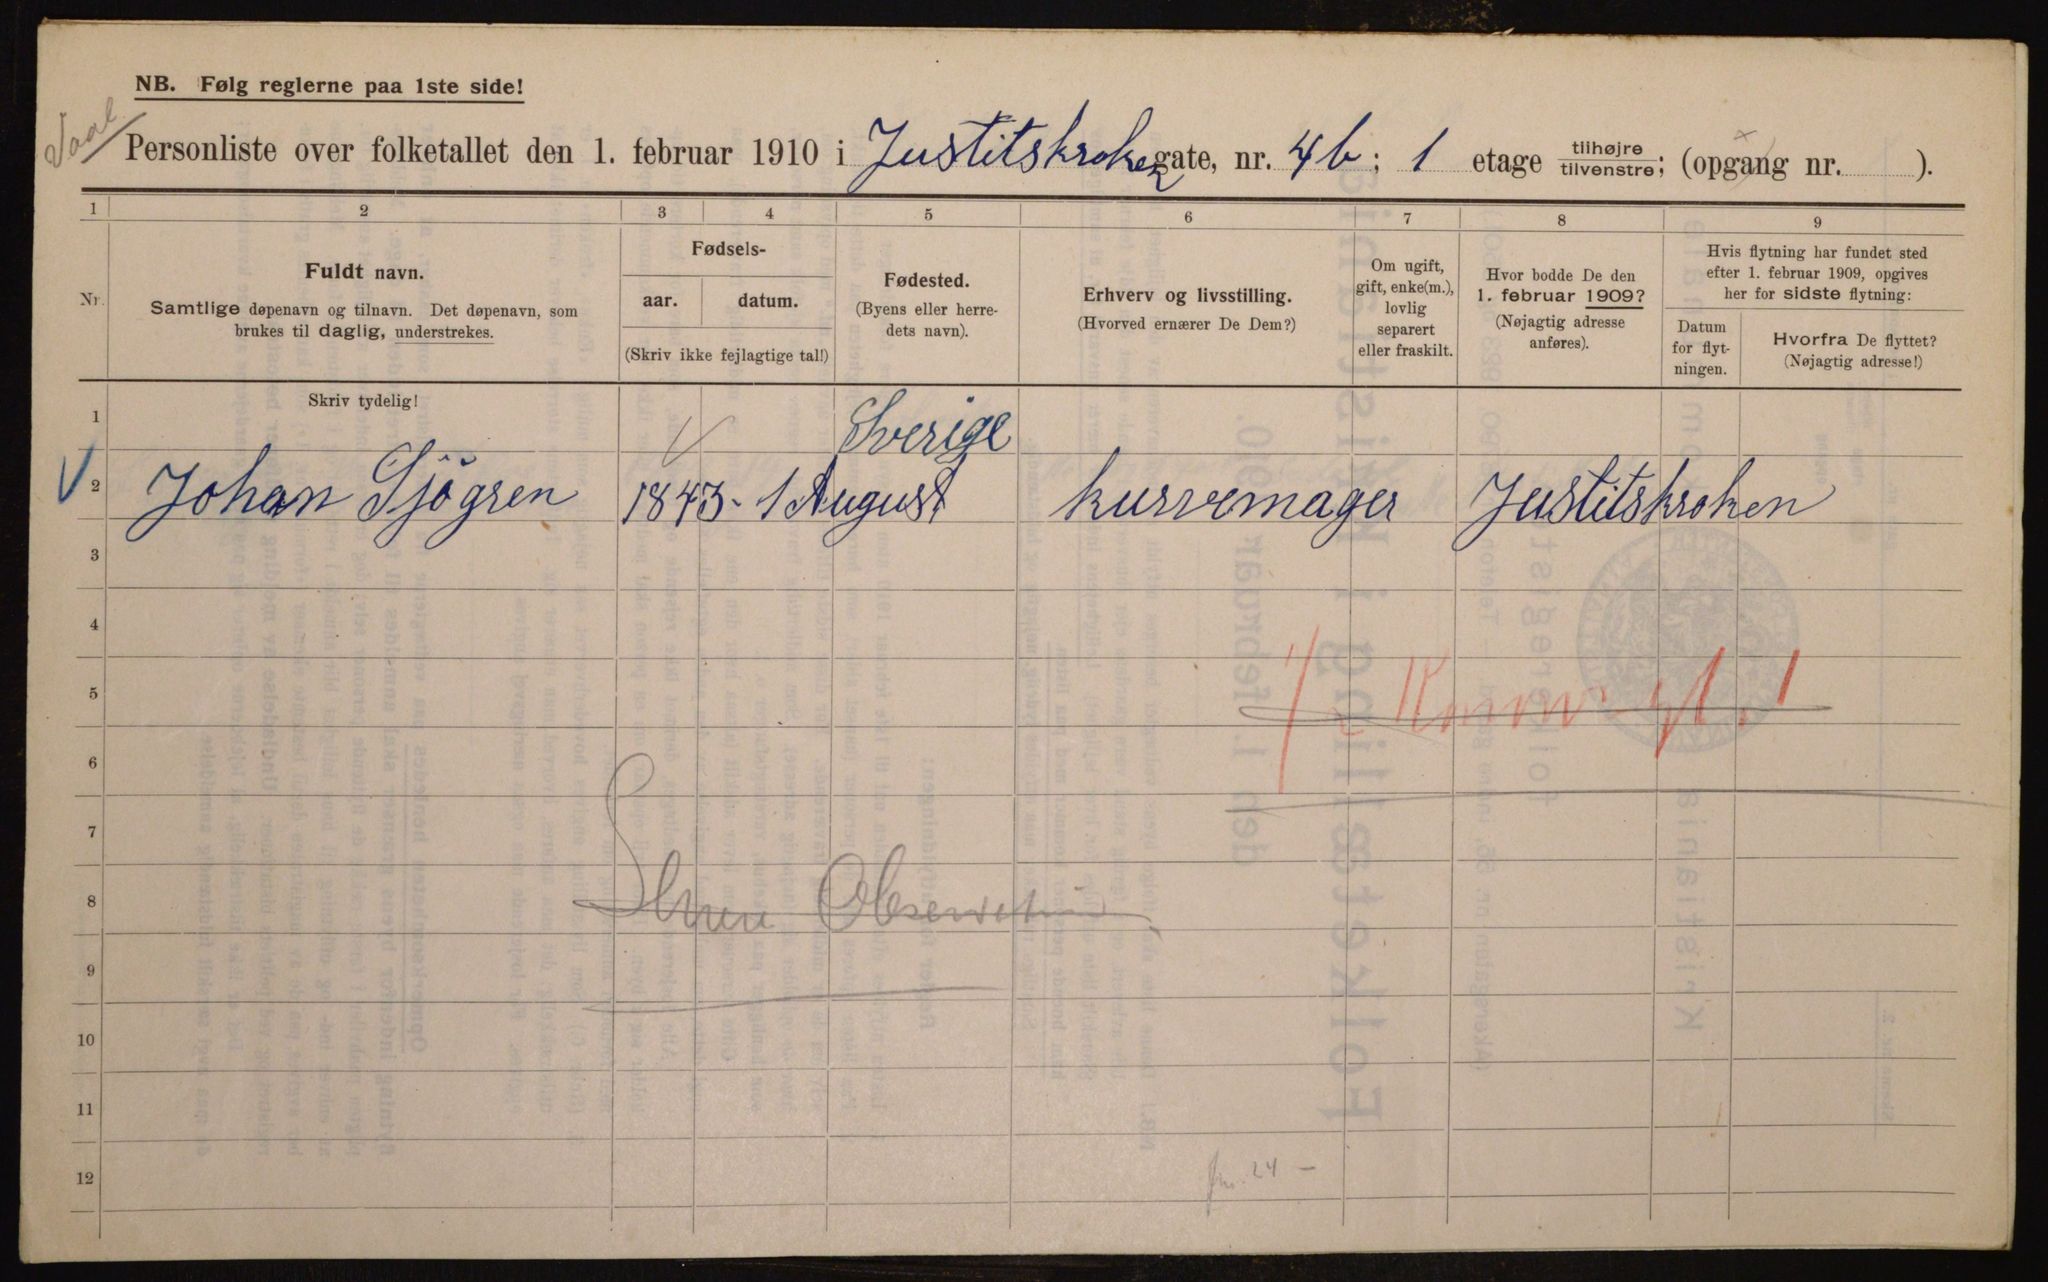 NB. Følg reglerne paa 1ste side!
Personliste over folketallet den 1. februar 1910 i Justitskroken gate, nr. 4b; 1 etage tilhøjre/tilvenstre; (opgang nr. ).
1 2 3 4 5 6 7 8 9
Nr.
Fuldt navn.
Samtlige døpenavn og tilnavn. Det døpenavn, som
brukes til daglig, understrekes.
Fødsels-
aar. datum.
(Skriv ikke fejlagtige tal!)
Fødested.
(Byens eller herre-
dets navn).
Erhverv og livsstilling.
(Hvorved ernærer De Dem?)
Om ugift,
gift, enke(m.),
lovlig
separert
eller fraskilt.
Hvor bodde De den
1. februar 1909?
(Nøjagtig adresse
anføres).
Hvis flytning har fundet sted
efter 1. februar 1909, opgives
her for sidste flytning:
Datum
for flyt-
ningen.
Hvorfra De flyttet?
(Nøjagtig adresse!)
Skriv tydelig!
1 Sverige
2 Johan Sjögren 1843 - 1 August kurvemager Justitskroken
3
4
5
6
7
8
9
10
11
12
24 —